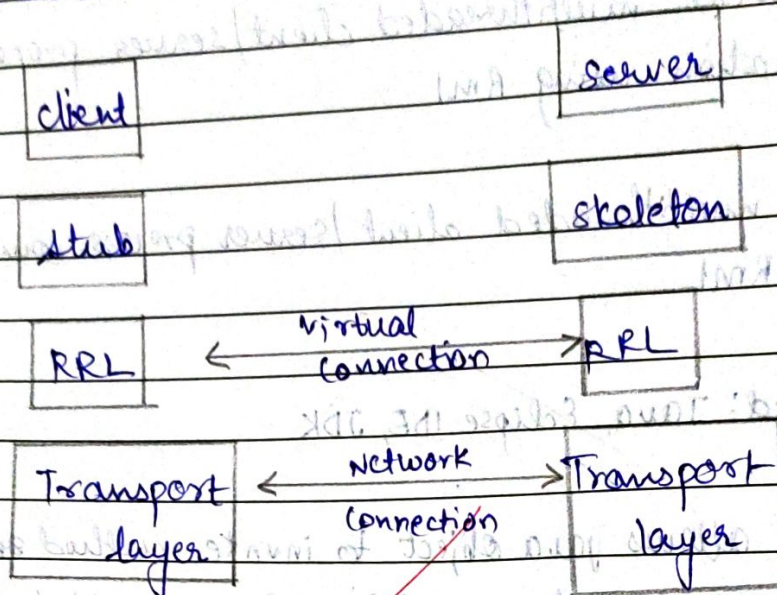 client
server
stub
skeleton
RRL
virtual
connection
RRL
Transport
layer
Network
connection
Transport
layer